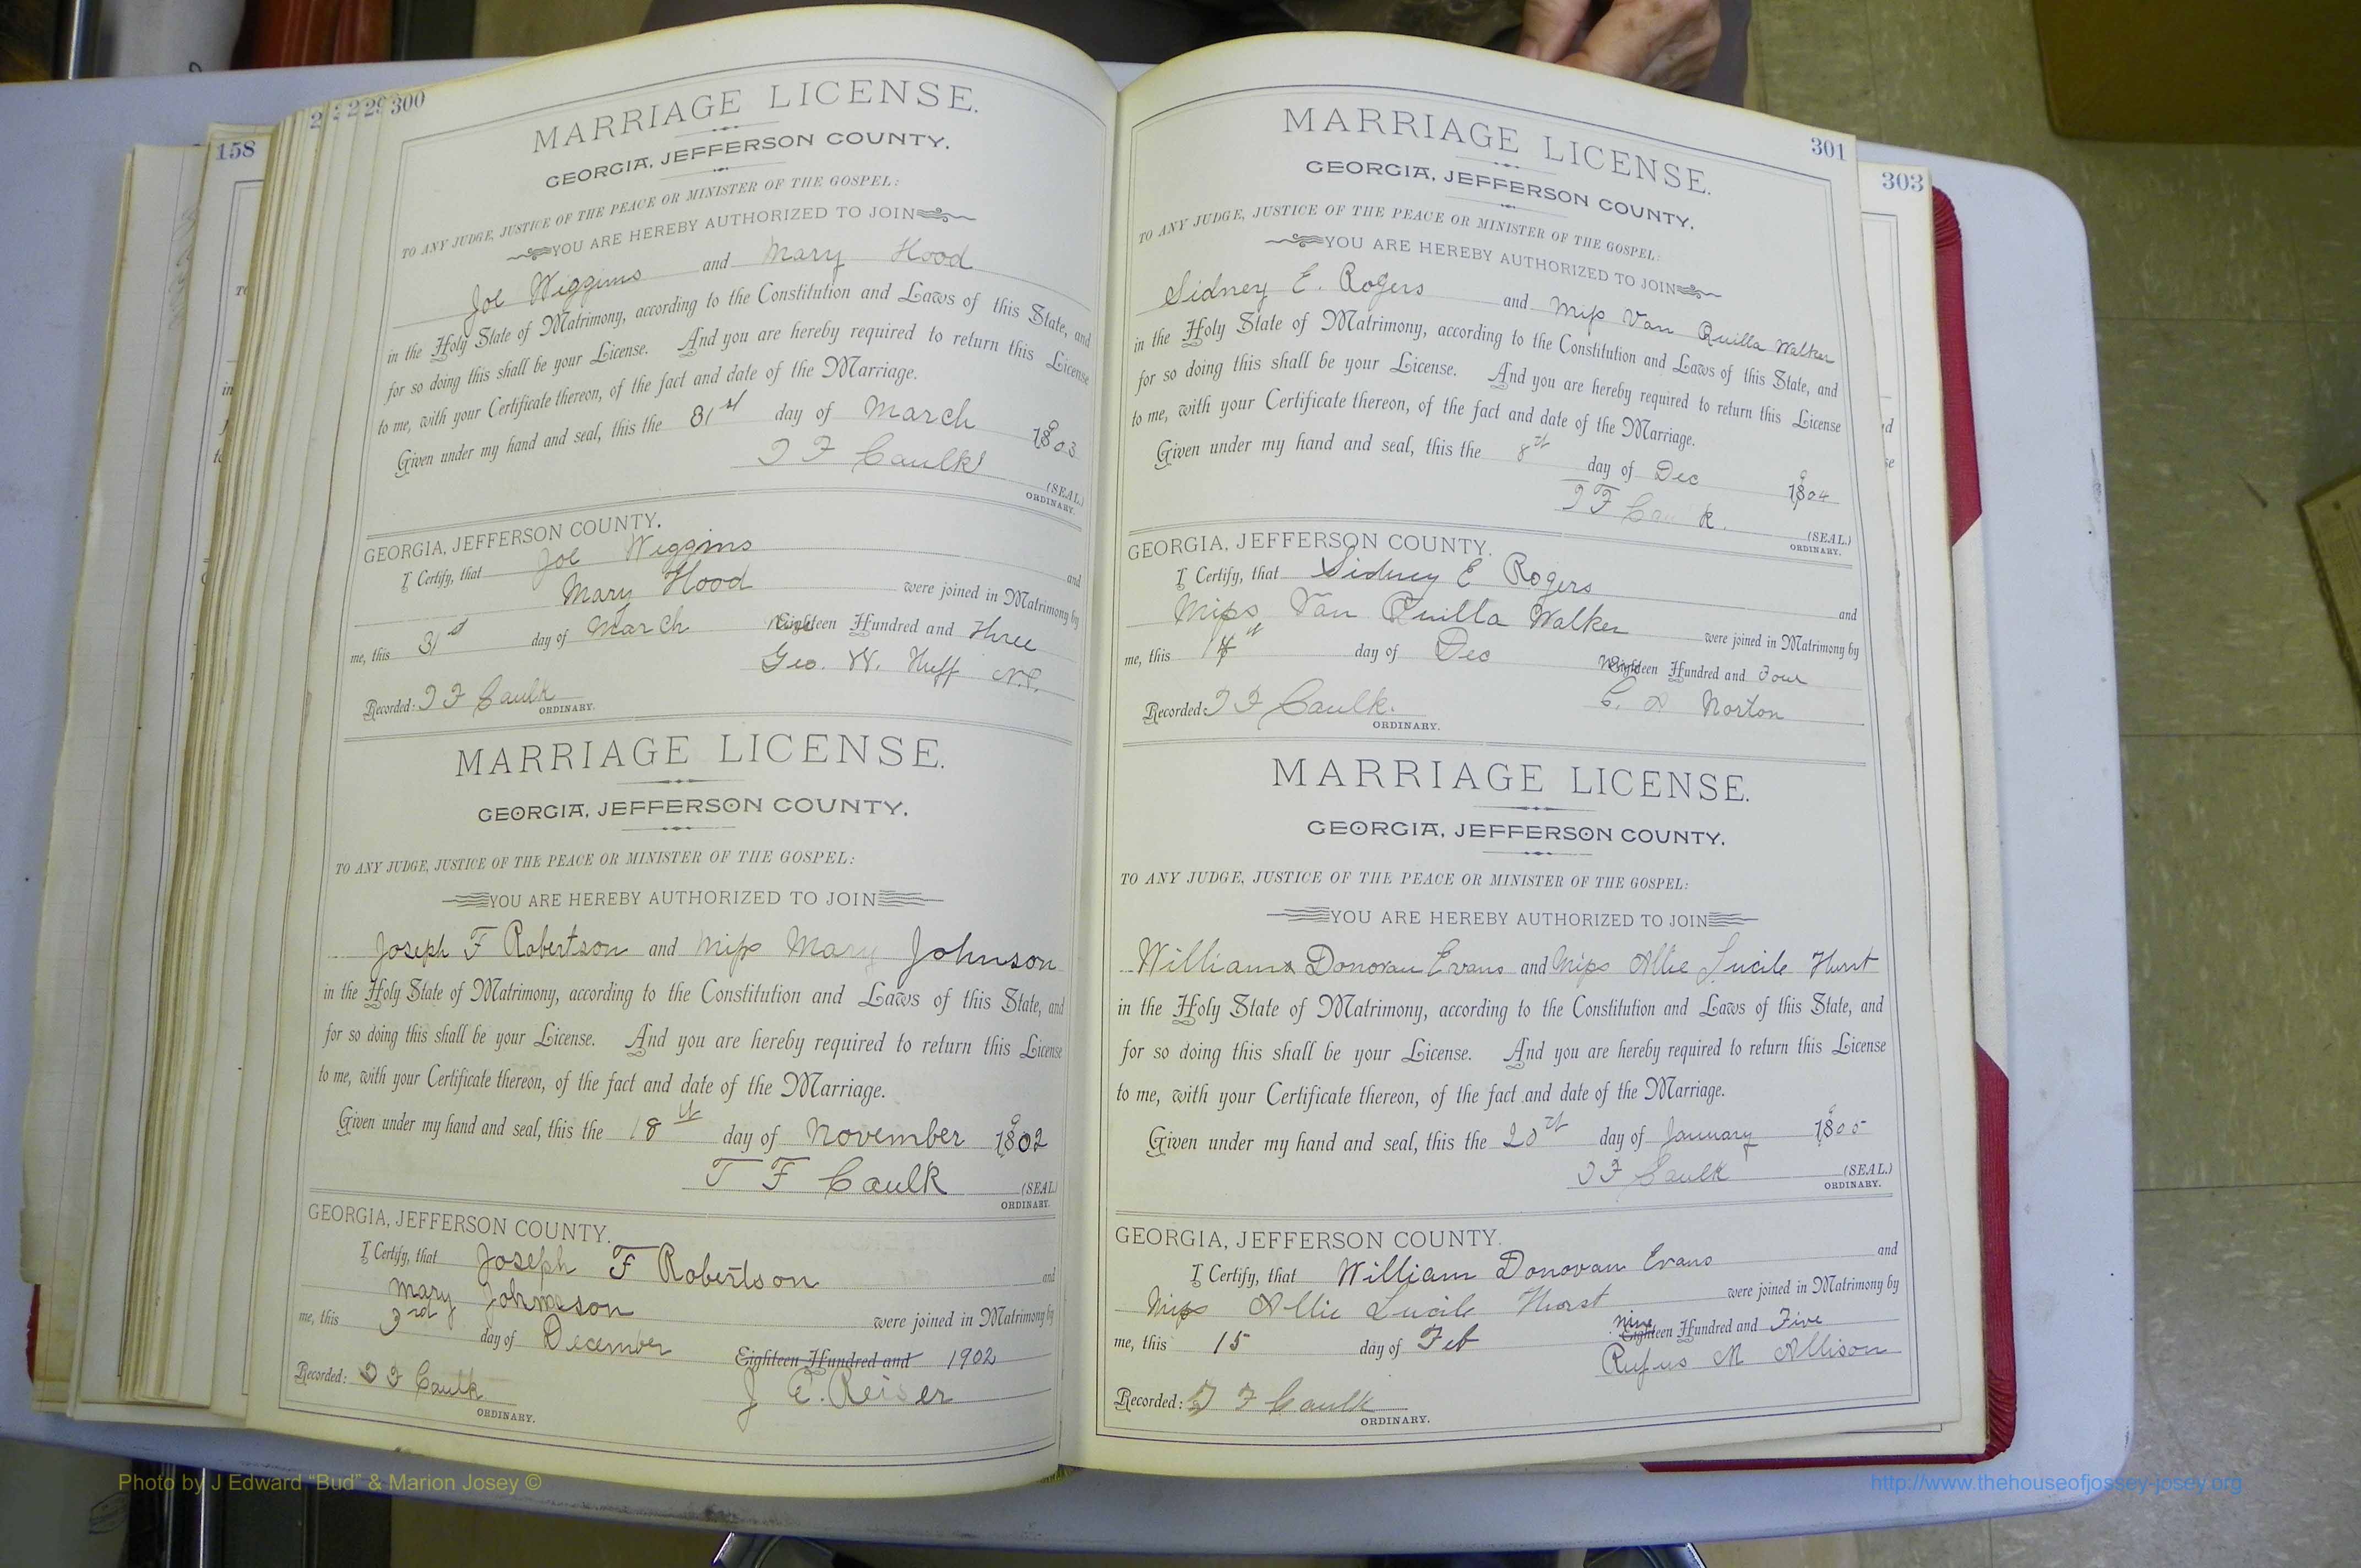 158
300
MARRIAGE LICENSE.
GEORGIA, JEFFERSON COUNTY.
TO ANY JUDGE, JUSTICE OF THE PEACE OR MINISTER OF THE GOSPEL:
YOU ARE HEREBY AUTHORIZED TO JOIN
Joe Wiggins and Mary Hood
in the Holy State of Matrimony, according to the Constitution and Laws of this State, and
for so doing this shall be your License. And you are hereby required to return this License
to me, with your Certificate thereon, of the fact and date of the Marriage.
Given under my hand and seal, this the 31st day of March 1903
T F Caulk
(SEAL.)
ORDINARY.
GEORGIA, JEFFERSON COUNTY.
I Certify, that Joe Wiggins and
Mary Hood were joined in Matrimony by
me, this 31st day of March Nineteen Hundred and Three
Geo. W. Huff N.P.
Recorded: T F Caulk
ORDINARY.
MARRIAGE LICENSE.
GEORGIA, JEFFERSON COUNTY.
TO ANY JUDGE, JUSTICE OF THE PEACE OR MINISTER OF THE GOSPEL:
YOU ARE HEREBY AUTHORIZED TO JOIN
Joseph F Robertson and Miss Mary Johnson
in the Holy State of Matrimony, according to the Constitution and Laws of this State, and
for so doing this shall be your License. And you are hereby required to return this License
to me, with your Certificate thereon, of the fact and date of the Marriage.
Given under my hand and seal, this the 18th day of November 1902
T F Caulk
(SEAL)
ORDINARY.
GEORGIA, JEFFERSON COUNTY.
I Certify, that Joseph F Robertson and
Mary Johnson were joined in Matrimony by
me, this 3rd day of December Eighteen Hundred and 1902
J E. Reiser
Recorded: T F Caulk
ORDINARY.
301
303
MARRIAGE LICENSE.
GEORGIA, JEFFERSON COUNTY.
TO ANY JUDGE, JUSTICE OF THE PEACE OR MINISTER OF THE GOSPEL:
YOU ARE HEREBY AUTHORIZED TO JOIN
Sidney E. Rogers and Miss Van Quilla Walker
in the Holy State of Matrimony, according to the Constitution and Laws of this State, and
for so doing this shall be your License. And you are hereby required to return this License
to me, with your Certificate thereon, of the fact and date of the Marriage.
Given under my hand and seal, this the 8th day of Dec 1904
T F Caulk.
(SEAL.)
ORDINARY.
GEORGIA, JEFFERSON COUNTY.
I Certify, that Sidney E Rogers and
Miss Van Quilla Walker were joined in Matrimony by
me, this day of Dec Nineteen Hundred and Four
Norton
Recorded: T F Caulk.
ORDINARY.
MARRIAGE LICENSE.
GEORGIA, JEFFERSON COUNTY.
TO ANY JUDGE, JUSTICE OF THE PEACE OR MINISTER OF THE GOSPEL:
YOU ARE HEREBY AUTHORIZED TO JOIN
William Donovan Evans and Miss Allie Lucile Hurst
in the Holy State of Matrimony, according to the Constitution and Laws of this State, and
for so doing this shall be your License. And you are hereby required to return this License
to me, with your Certificate thereon, of the fact and date of the Marriage.
Given under my hand and seal, this the 20th day of January 1905
T F Caulk
(SEAL.)
ORDINARY.
GEORGIA, JEFFERSON COUNTY.
I Certify, that William Donovan Evans and
Miss Allie Lucile Hurst were joined in Matrimony by
me, this 15 day of Feb Nineteen Hundred and Five
Rufus M Allison
Recorded: T F Caulk
ORDINARY.
Photo by J Edward "Bud" & Marion Josey ©
http://www.thehouseofjossey-josey.org